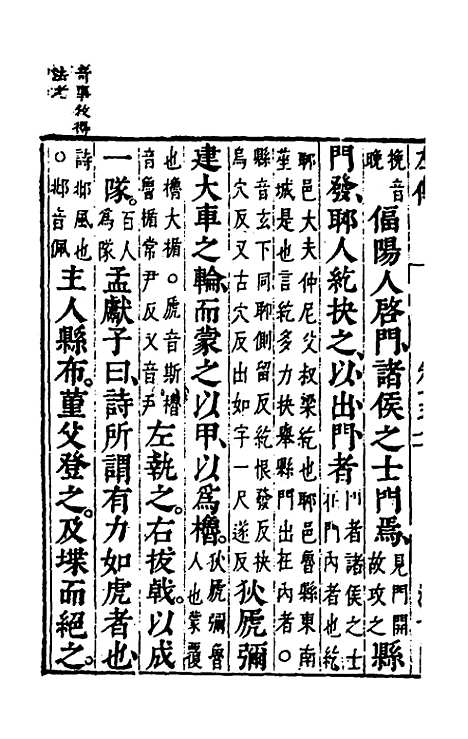 挽音晚偪陽人啓門、諸侯之士門焉、見門開故攻之縣
門發、郰人紇抉之、以出門者門者諸侯之士在門內者也紇
郰邑大夫仲尼父叔梁紇也郰邑魯縣東南莝城是也言紇多力抉舉縣門出在內者○
縣音玄下同郰側留反紇恨發反抉烏穴反又古穴反出如字一尺遂反狄虒彌
建大車之輪、而蒙之以甲、以爲櫓。狄虒彌魯人也蒙覆
也櫓大楯○虒音斯櫓音魯楯常尹反又音尹左執之。右拔戟。以成
一隊。百人爲隊孟獻子曰、詩所謂有力如虎者也、
詩邶風也○邶音佩主人縣布。堇父登之。及堞而絕之。
奇事敘得
法老